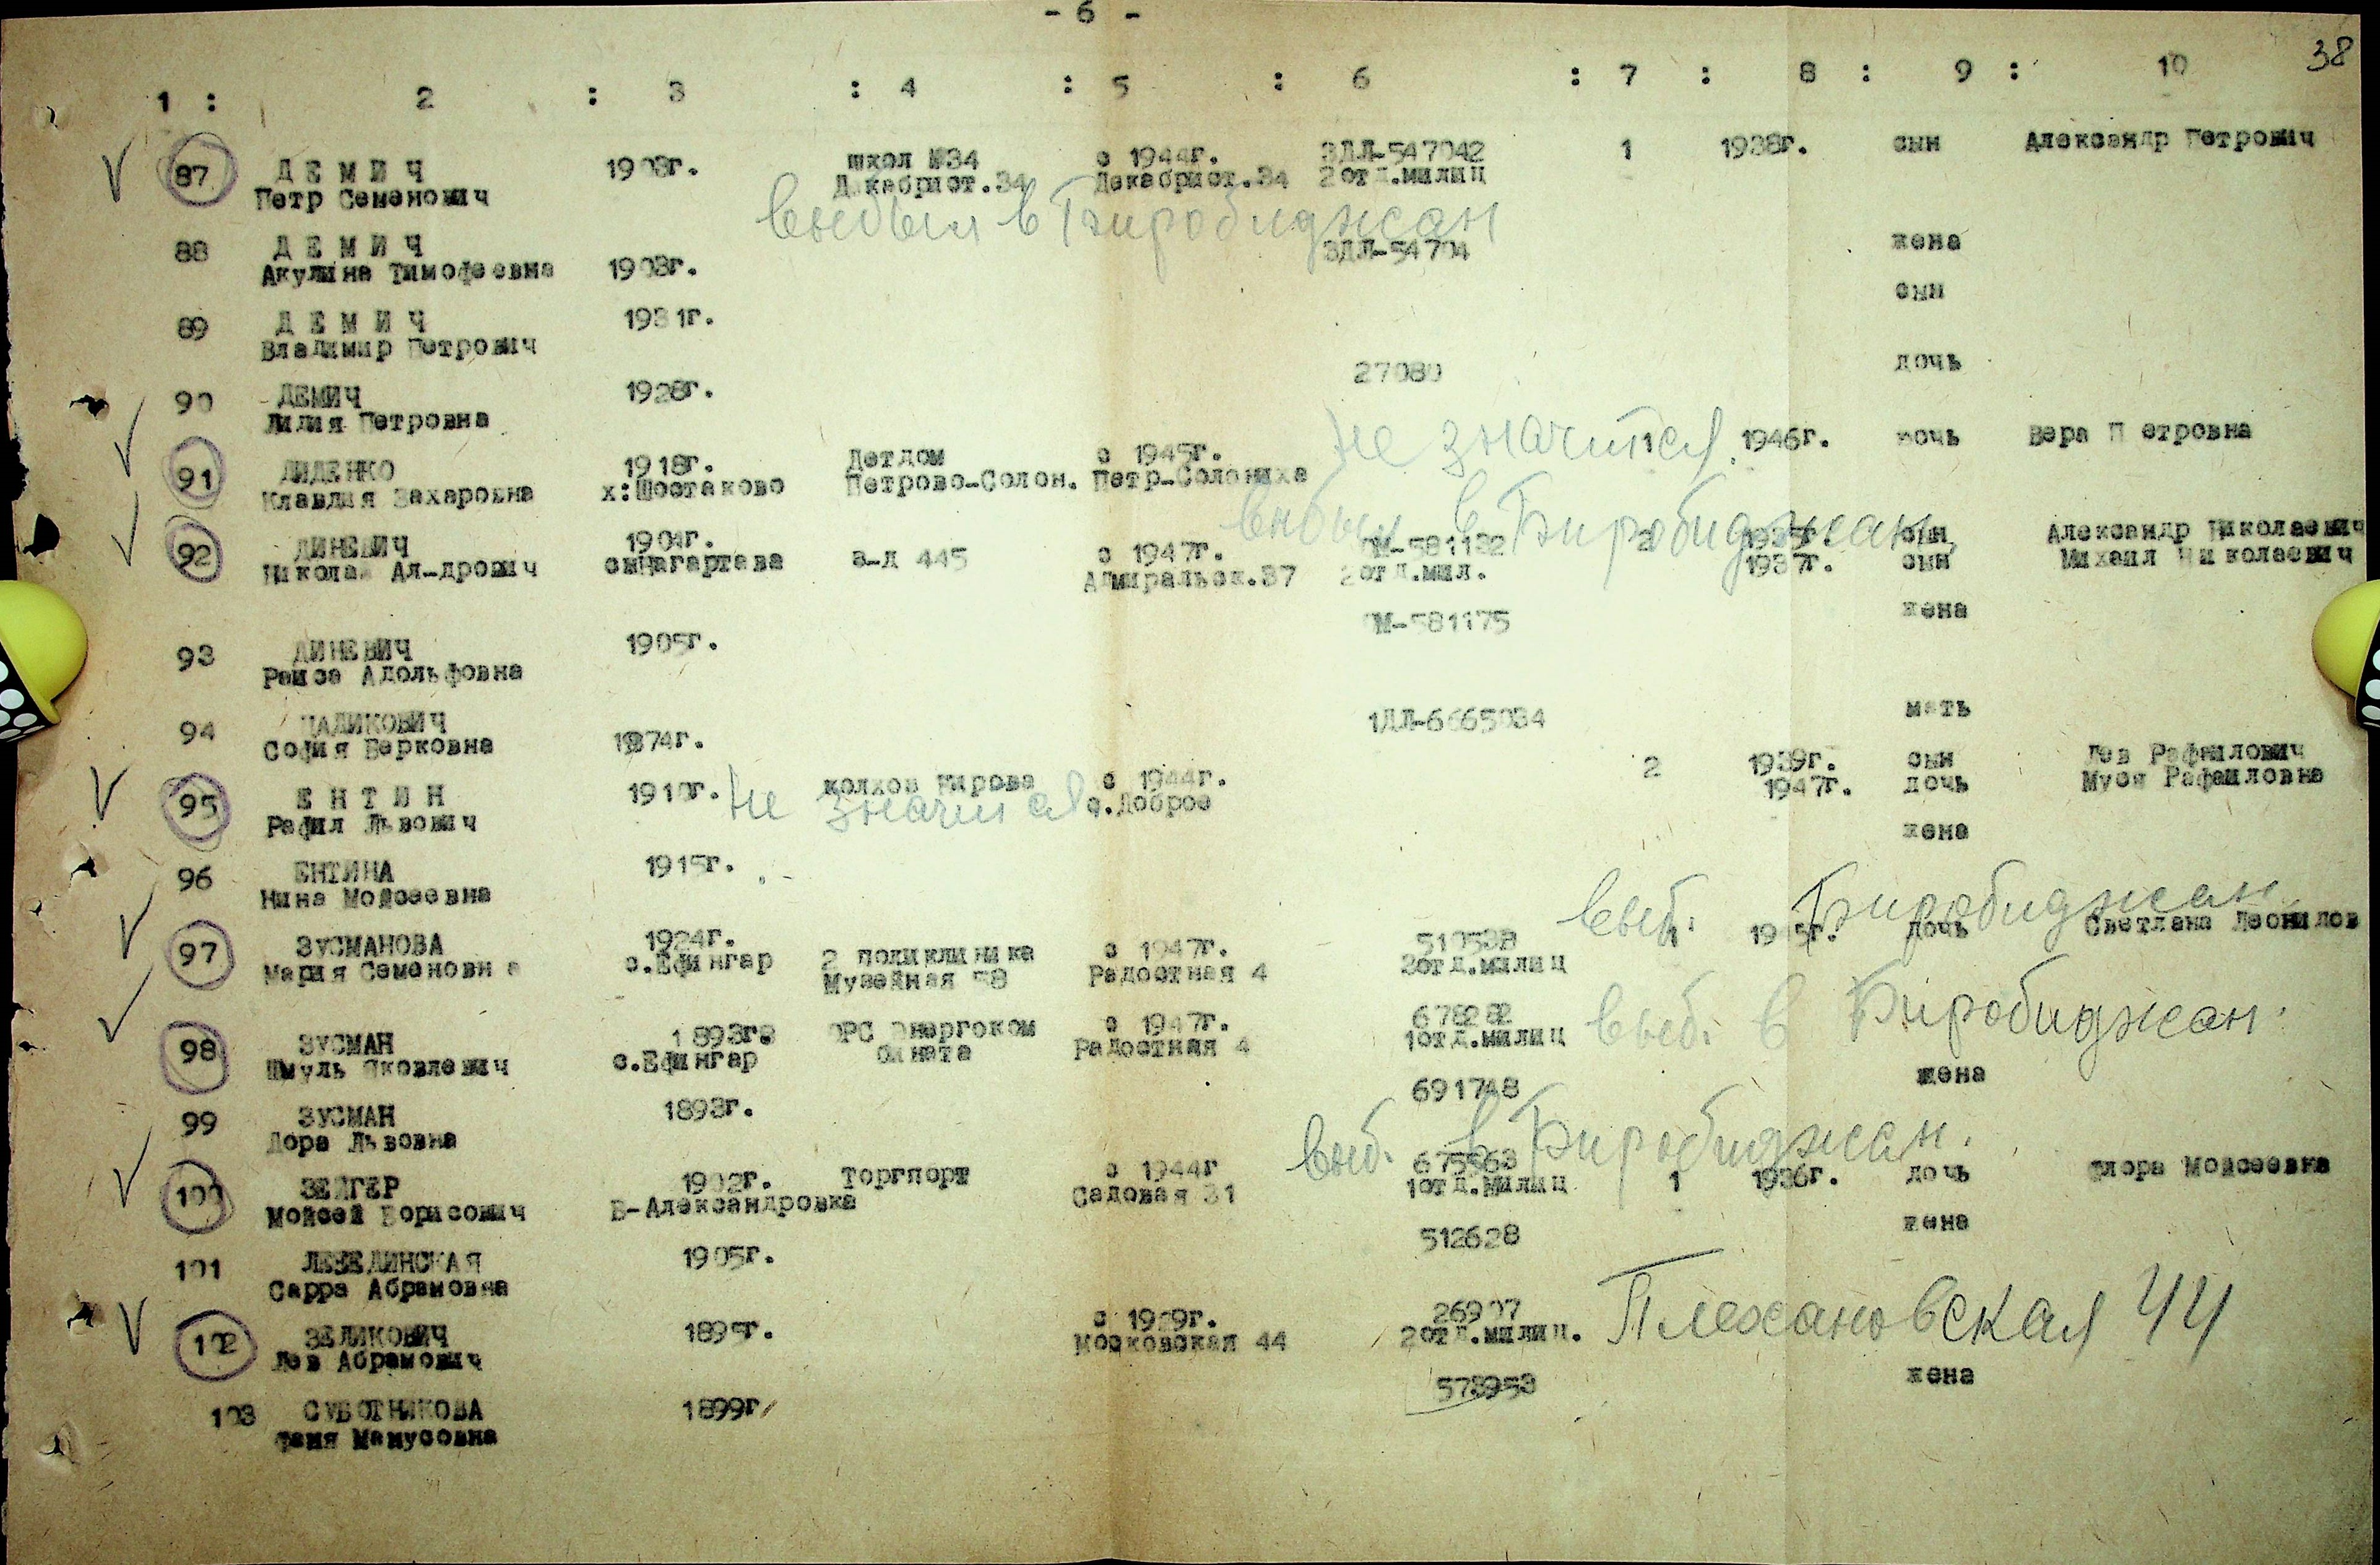 - 6 -
38
1 : 2 : 3 : 4 : 5 : 6 : 7 : 8 : 9 : 10
87 ДЕМИЧ 1903г. школ №34 с 1944г. 3ДЛ-547042 1 1938г. сын Александр Петрович
Петр Семенович Декабрист.34 Декабрист.34 2отд.милиц
выбыл в Биробиджан
88 ДЕМИЧ 3ДЛ-54704 жена
Акулина Тимофеевна 1903г.
сын
89 ДЕМИЧ 1931г.
Владимир Петрович
90 ДЕМИЧ 1928г. 27080 дочь
Лилия Петровна
не значится
91 ДИДЕНКО 1918г. Детдом с 1945г. 1 1946г. дочь Вера Петровна
Клавдия Захаровна х:Шостаково Петрово-Солон. Петр-Солониха
выбыл в Биробиджан
92 ДИНЕВИЧ 1904г. з-д 445 с 1947г. -581132 2 1935г. сын Александр Николаевич
Николай Ал-дрович Нагартава Адмиральск.37 2отд.мил. 1937г. сын Михаил Николаевич
93 ДИНЕВИЧ 1905г. -581175 жена
Раиса Адольфовна
94 1874г. 1ДЛ-6665034 мать
София Берковна
95 ЕНТИН 1910г. колхоз Кирова с 1944г. 2 1939г. сын Лев Рафаилович
Рафил Львович с.Доброе 1947г. дочь Муся Рафаиловна
не значится
96 ЕНТИНА 1915г. жена
Нина Мойсеевна
выб. Биробиджан
97 ЗУСМАНОВА 1924г. 2 поликлиника с 1947г. 510538 1 1945г. дочь Светлана Леонидов
Мария Семеновна с.Ефингар Музейная 58 Радостная 4 2отд.милиц
выб. в Биробиджан.
98 ЗУСМАН 1893г. ОРС Энергоком с 1947г. 678282
Шмуль Яковлевич с.Ефингар бината Радостная 4 1отд.милиц
99 ЗУСМАН 1893г. 691748 жена
Дора Львовна
выб. в Биробиджан.
100 ЗЕЙГЕР 1902г. Торгпорт с 1944г 675563 1 1936г. дочь Флора Мойсеевна
Мойсей Борисович В-Александровка Садовая 31 1отд.милиц
101 ЛЕБЕДИНСКАЯ 1905г. 512628 жена
Сарра Абрамовна
102 ЗЕЛИКОВИЧ 1895г. с 1929г. 26907 Плехановская 44
Лев Абрамович Московская 44 2отд.милиц.
103 СУБОТНИКОВА 1899г 573953 жена
Фаня Манусовна